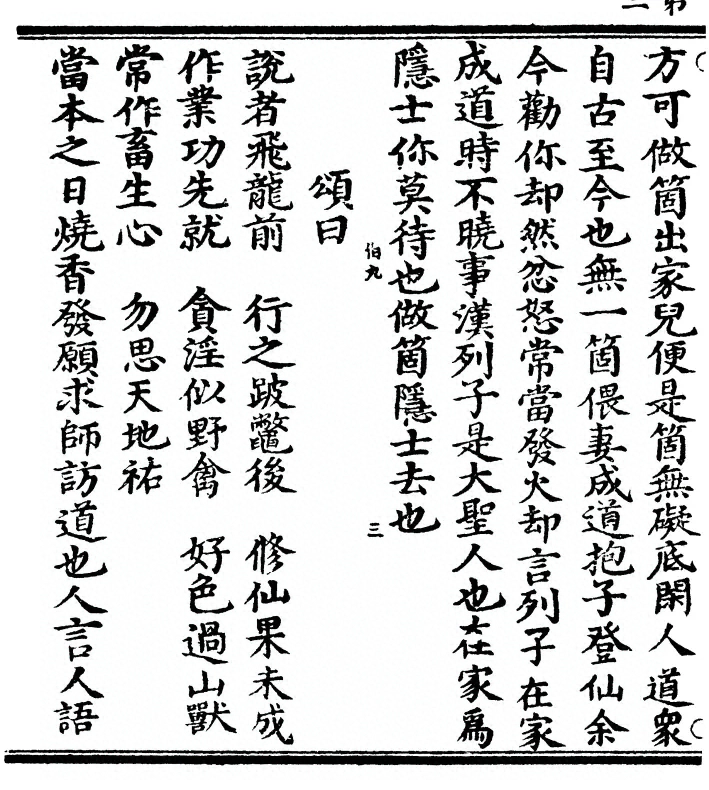 方可做箇出家兒便是箇無礙底閑人道衆
自古至今也無一箇偎妻成道抱子登仙余
今勸你却然忿怒常當發火却言列子在家
成道時不曉事漢列子是大聖人也在家爲
隱士你莫待也做箇隱士去也
伯九
三
頌曰
說者飛龍前 行之跛鼈後 修仙果未成
作業功先就 貪淫似野禽 好色過山獸
常作畜生心 勿思天地祐
當本之日燒香發願求師訪道也人言人語